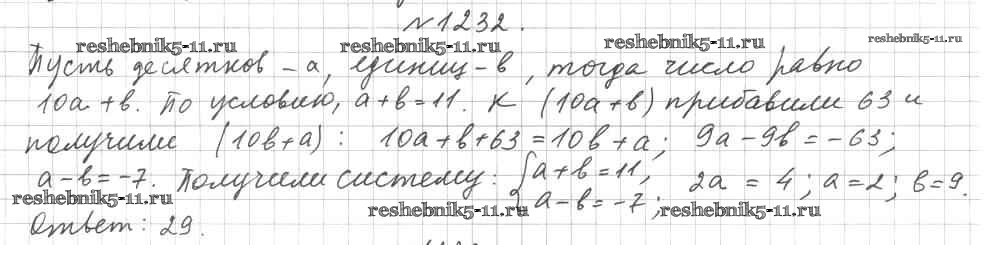 №1232.
reshebnik5-11.ru reshebnik5-11.ru reshebnik5-11.ru reshebnik5-11.ru
Пусть десятков - a, единиц - b, тогда число равно
10a+b. По условию, a+b=11. К (10a+b) прибавили 63 и
получили (10b+a): 10a+b+63=10b+a; 9a-9b=-63;
a-b=-7. Получили систему: { a+b=11, a-b=-7; 2a=4; a=2; b=9.
reshebnik5-11.ru reshebnik5-11.ru reshebnik5-11.ru
Ответ: 29.